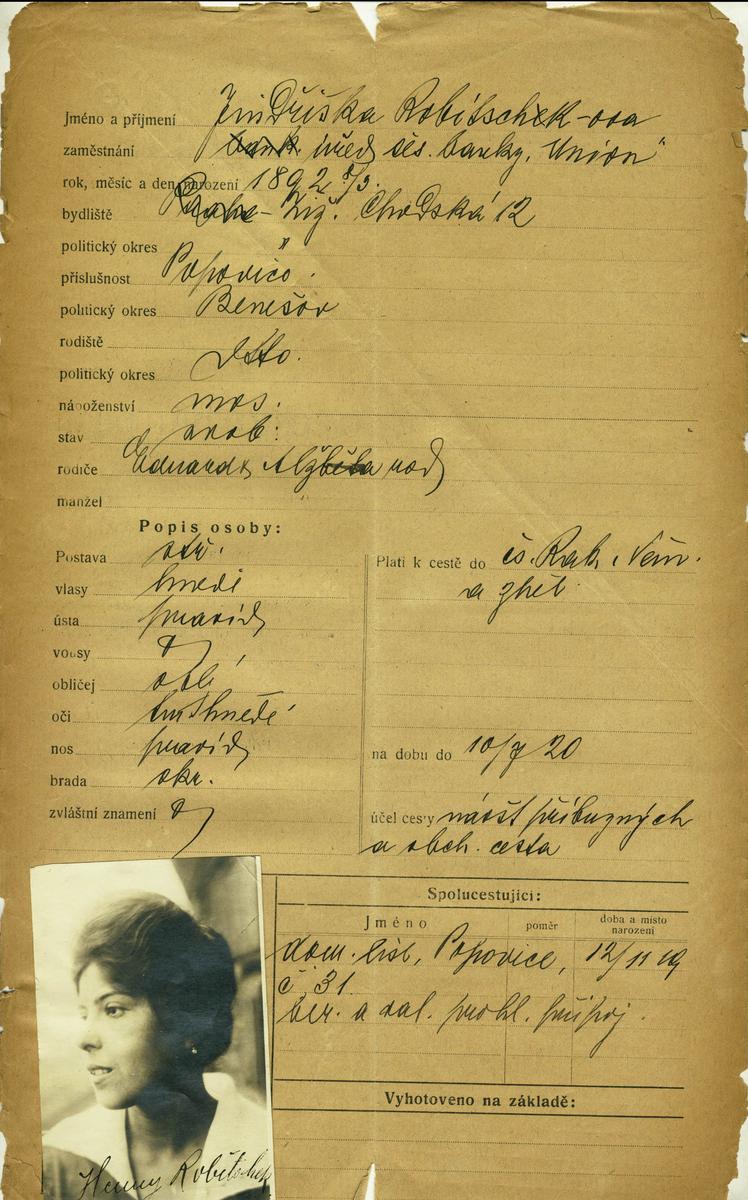 Jméno a příjmení Jindřiška Robitschek-ova
zaměstnání úřed. čes. banky „Union"
rok, měsíc a den narození 1892 8/3.
bydliště Praha - Žiž. Chodská 12
politický okres "
příslušnost Popovice.
politický okres Benešov
rodiště
politický okres detto.
náboženství mos.
stav svob.
rodiče Eduard & Alžběta rod
manžel
Popis osoby:
Postava stř.
vlasy hnědé
ústa pravid.
vousy
obličej oblé
oči tm hnědé
nos pravid.
brada okr.
zvláštní znamení
Platí k cestě do čs. Rak. Něm.
a zpět.
na dobu do 10/7 20
účel cesty návšt příbuzných
a obch. cesta
Spolucestující:
Jméno poměr doba a místo narození
dom. list, Popovice, 12/11 19
č. 31.
ber. a val. prohl. připoj.
Vyhotoveno na základě:
Henny Robitschek